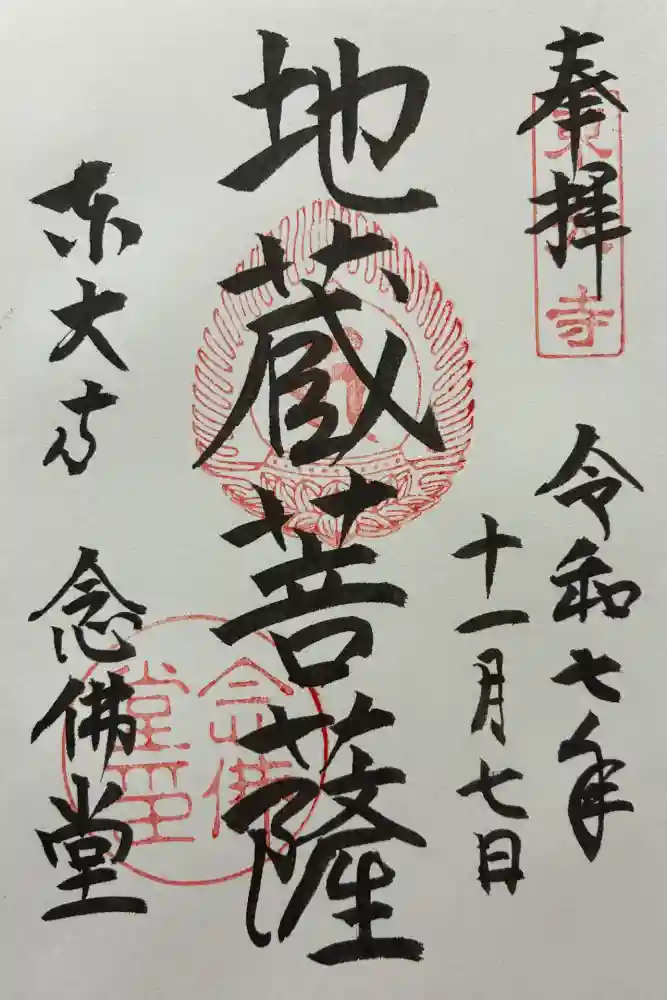 奉拝
東大寺
令和七年
十一月七日
地蔵菩薩
東大寺
念佛堂
念佛堂印